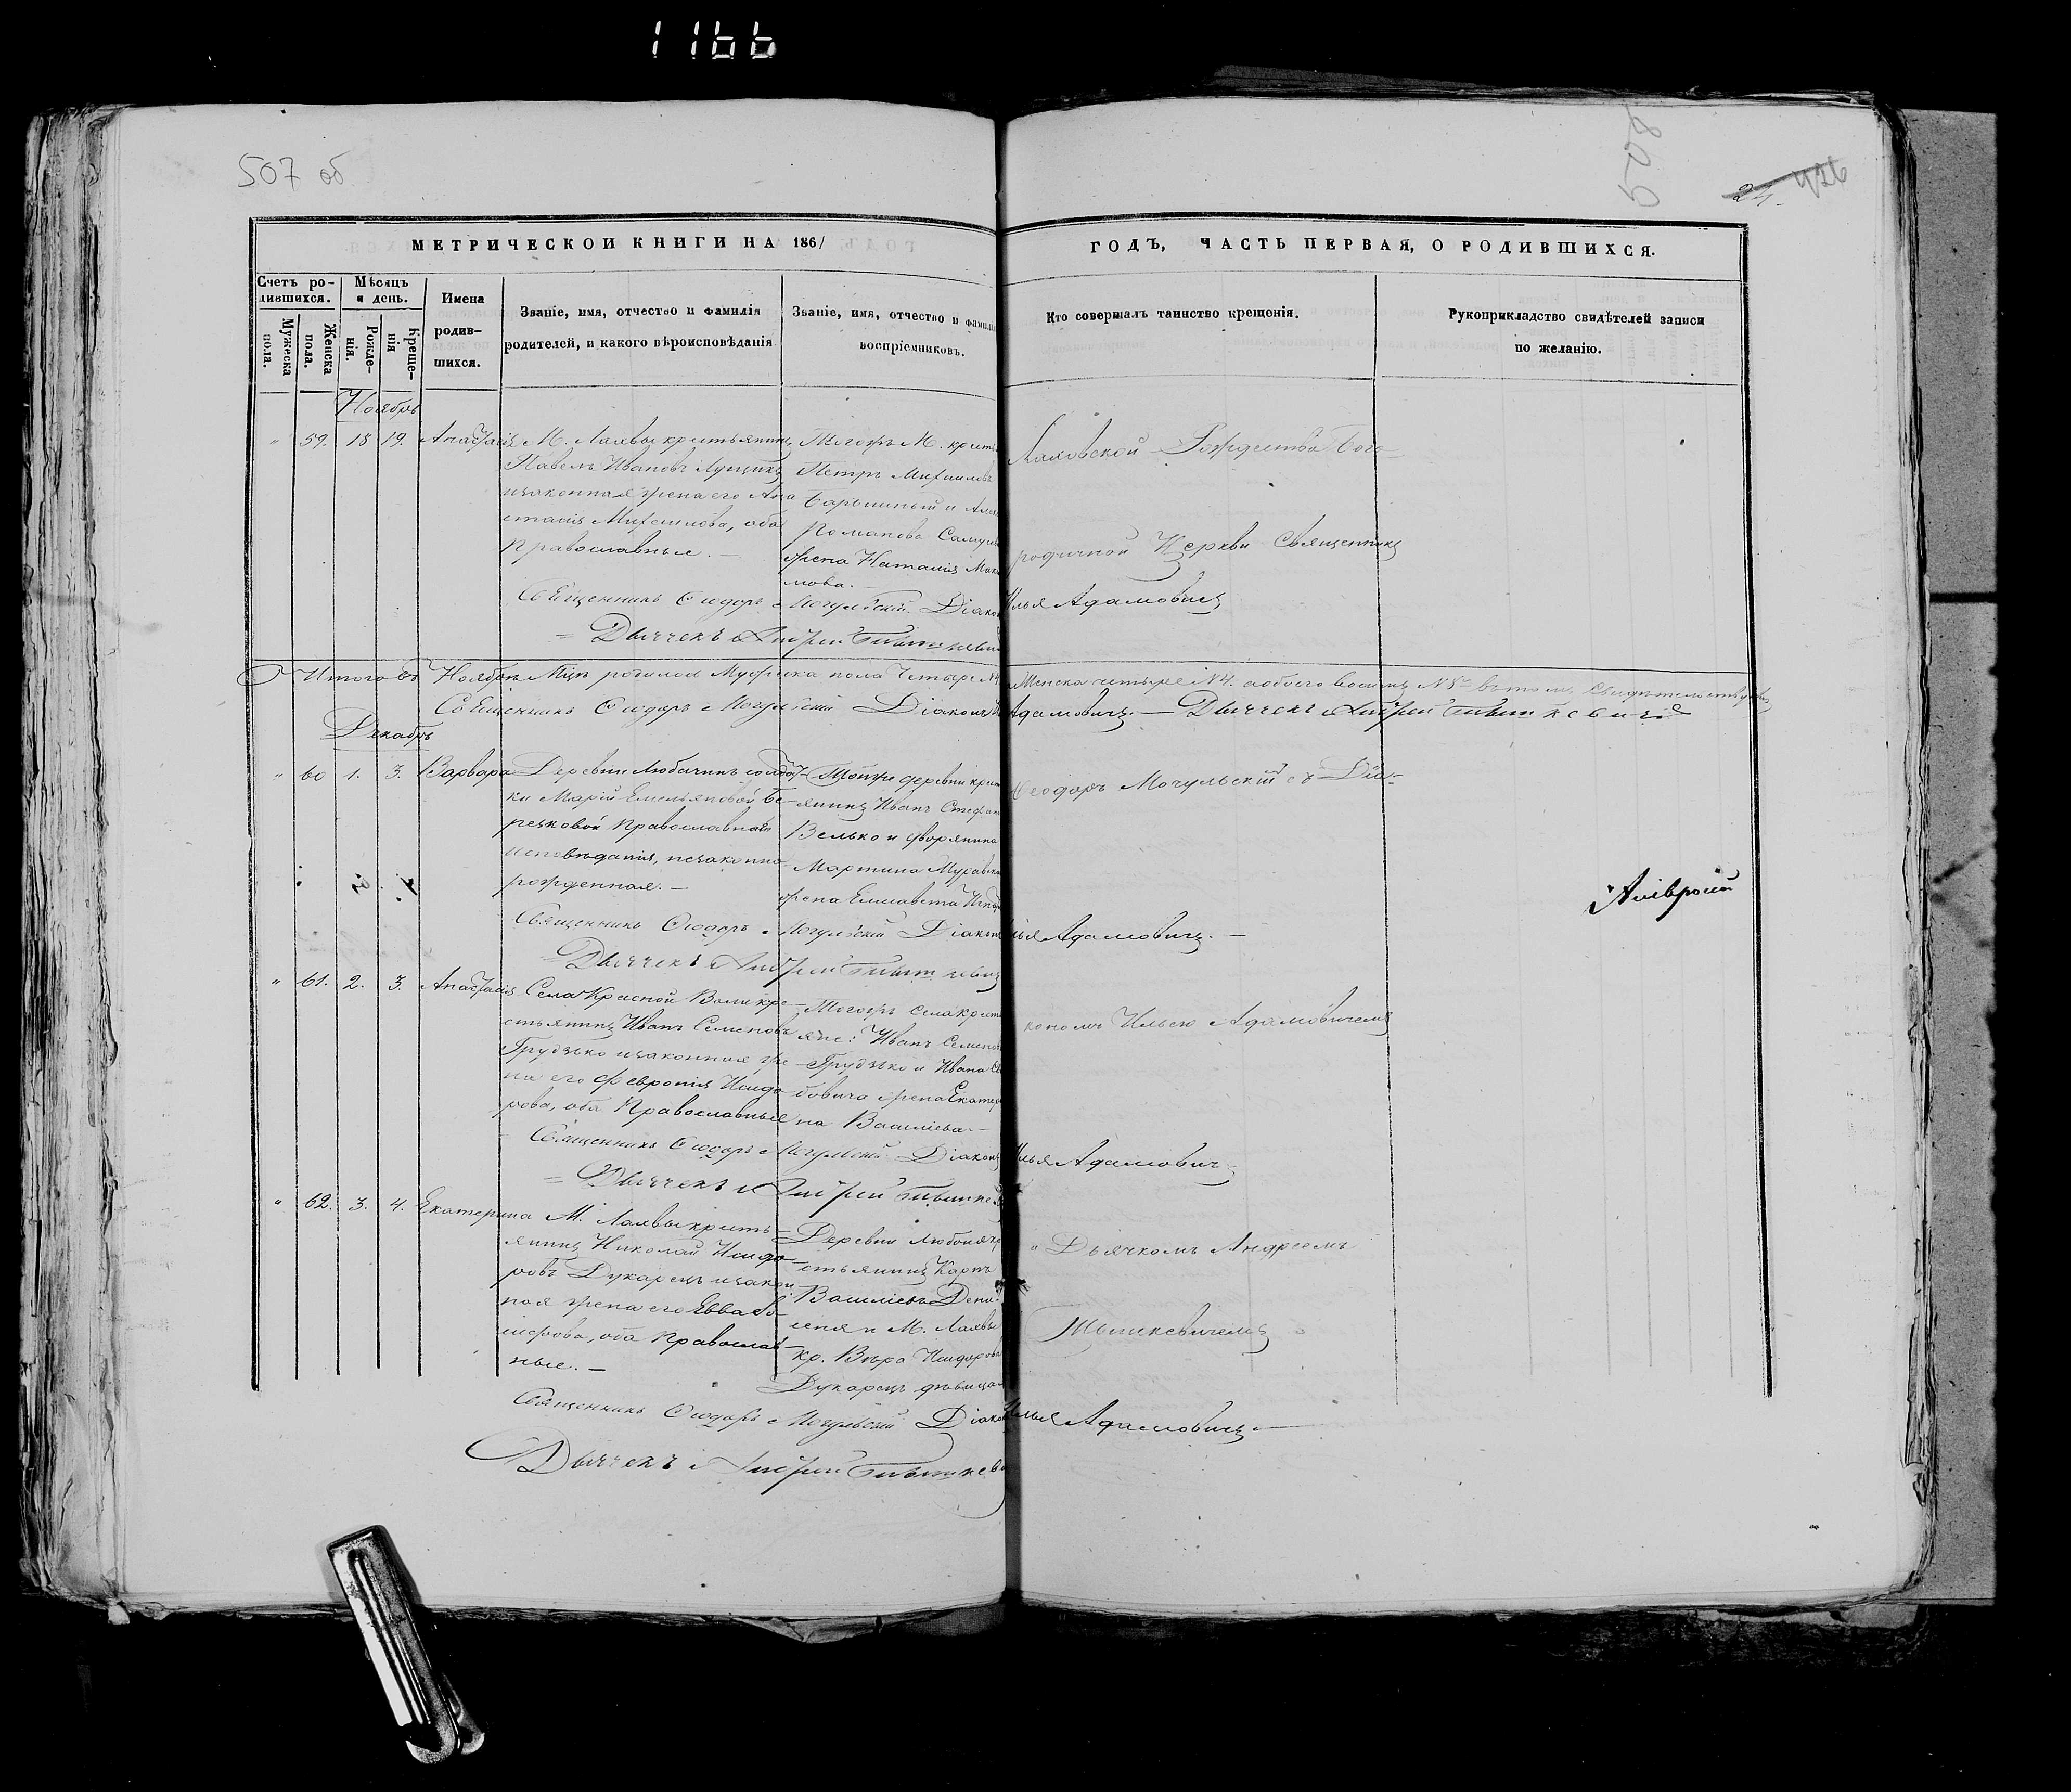 1166
507 об
508
24. 426
МЕТРИЧЕСКОЙ КНИГИ НА 1861
ГОДЪ, ЧАСТЬ ПЕРВАЯ, О РОДИВШИХСЯ.
Счетъ ро-
дившихся.
Мужеска
пола.
Женска
пола.
Мѣсяцъ
и день.
Рожде-
нія.
Креще-
нія
Имена
родив-
шихся.
Званіе, имя, отчество и фамилія
родителей, и какого вѣроисповѣданія
Званіе, имя, отчество и фамилі
воспріемниковъ.
Кто совершалъ таинство крещенія.
Рукоприкладство свидѣтелей записи
по желанію.
Ноябрь
" 59. 18 19. Анастасія
М. Лахвы крестьянинъ
Павелъ Ивановъ
и законная жена его Ана
стасія Михаилова, оба
Православные. —
Тогожъ М. крест
Петръ Михаиловъ
и
Романова
жена Наталія Макс
мова.
Лаховской Рождества Бого
родичной Церкви Священникъ
Священникъ Ѳеодоръ Мочульскій Діаконъ Илья Адамовичъ
= Дьячекъ Андрей
Итого въ Ноябрѣ Мцѣ родилося Мужеска пола Четыре N4 Женска четыре N4. а обоего восемь N8 въ томъ свидѣтельствуемъ
Священникъ Ѳеодоръ Мочульскій Діаконъ Адамовичъ. — Дьячекъ Андрей Тышкевичъ
Декабрь
" 60 1. 3. Варвара
Деревни Любачинъ солдат-
ки Маріи Емельяновой Бе-
резковой Православнаго
исповѣданія, незаконно-
рожденная. —
Тойже деревни крест
янинъ Иванъ Стефан
Велько и дворянина
Мартина
жена Елисавета
Ѳеодоръ Мочульскій съ Діа-
Амвросій
Священникъ Ѳеодоръ Мочульскій Діаконъ Илья Адамовичъ. —
= Дьячекъ Андрей
" 61. 2. 3. Анастасія
Села Красной Воли кре-
стьянинъ Иванъ Семеновъ
Грудзько и законная же-
на его Февронія Исидо
рова, оба Православные
Тогожъ села крест
яне: Иванъ Семенов
Грудзько и Ивана
бовича жена Екатери
на Василіева. —
кономъ Ильею Адамовичемъ
Священникъ Ѳеодоръ Мочульскій Діаконъ Илья Адамовичъ
= Дьячекъ Андрей
" 62. 3. 4. Екатерина
М. Лахвы кресть-
янинъ Николай Исидо
ровъ Дукарецъ и закон
ная жена его Евва
оба Православ
ные. —
Деревни кр
стьянинъ Карпъ
Василіевъ
и М. Лахвы
кр. Вѣра Исидорова
Дукарецъ дѣвица
и Дьячкомъ Андреемъ
Тышкевичемъ
Священникъ Ѳеодоръ Мочульскій Діаконъ Илья Адамовичъ. —
Дьячекъ Андрей Тышкеви